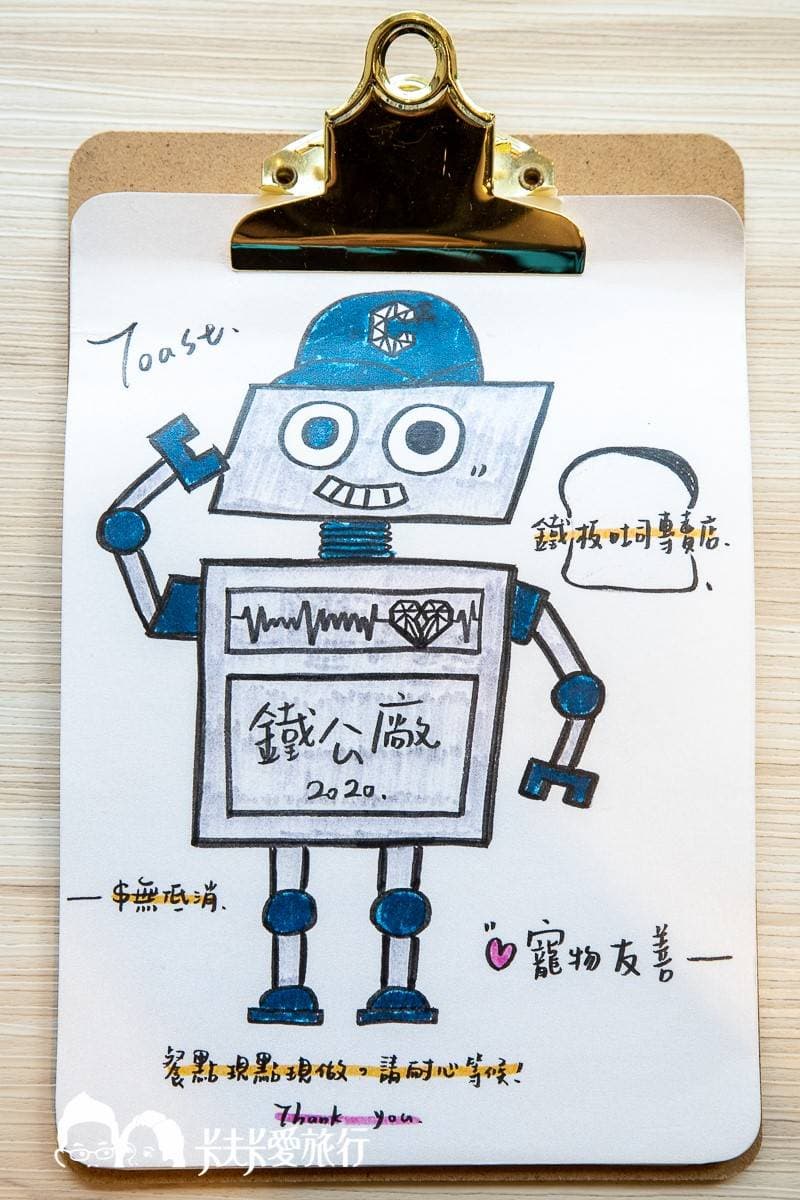 C
Toast.
鐵板吐司專賣店.
鐵公廠
2020.
$無低消.
寵物友善
餐點現點現做。請耐心等候!
Thank you.
卡夫卡愛旅行